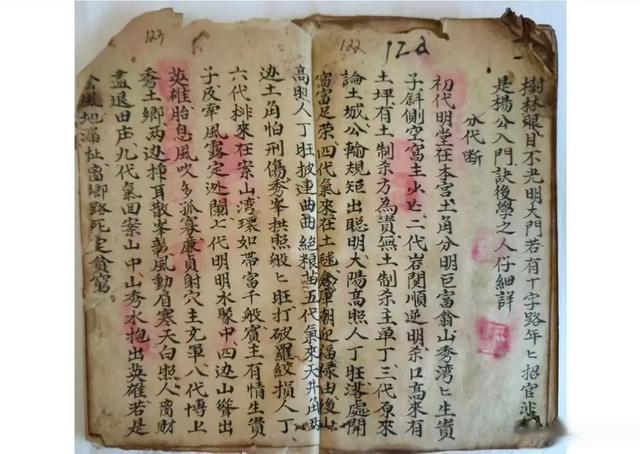 122
樹林眼目不光明大門若有十字路年〻招官
是楊公入門訣後學之人仔細詳
分代斷
初代明堂在本宮土角分明巨富翁山秀湾〻生貴
子斜側空窩主少亡二代岩関順逆明杀口高來有
土坪有土制杀方為貴無土制杀主单丁三代原來
論土城公輸規矩出聰明太陽高照人丁旺落處開
窩富足荣四代氣來在土毬倉庫朝迎福禄由後山
123
高照人丁旺披連曲曲絕粮苗五代氣來天井角两
边土角怕刑傷秀峯拱照般〻旺打破羅紋損人丁
六代排來在案山湾環如带富千般賓主有情生貴
子反牵風露定逃關七代明明水聚中四边山聳出
英雄胎息風吹多孤寡廉貞射穴主充軍八代博上
秀土鄉两边插耳散峯彰風動眉寒天白照人离财
盡退田庄九代氣回案山中山秀水抱出英雄若是
風地漏扯离鄉路死定貧窮